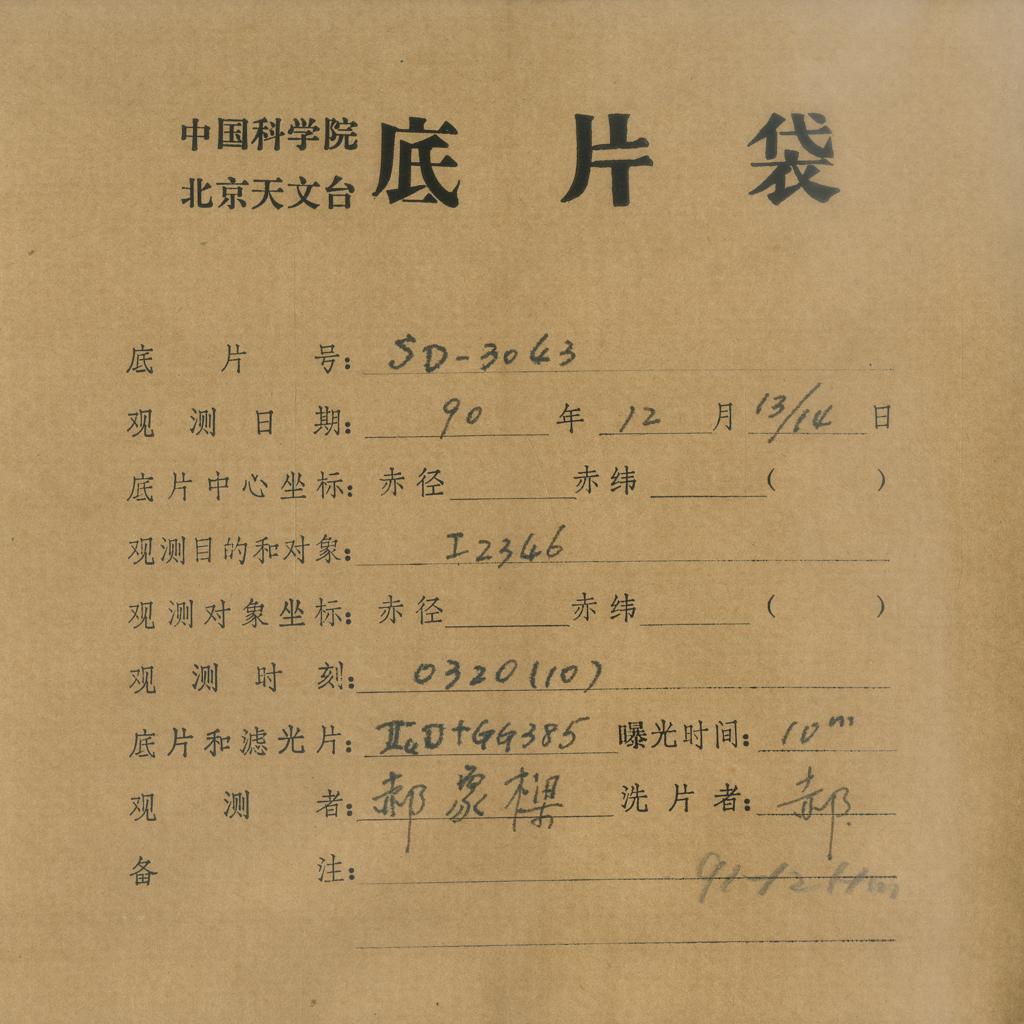 中国科学院
北京天文台
底片袋
底片号: SD-3043
观测日期: 90年12月13/14日
底片中心坐标: 赤径 赤纬 ( )
观测目的和对象: I2346
观测对象坐标: 赤径 赤纬 ( )
观测时刻: 0320(10)
底片和滤光片: IIaD+GG385 曝光时间: 10m
观测者: 郝象樑 洗片者: 郝
备注: